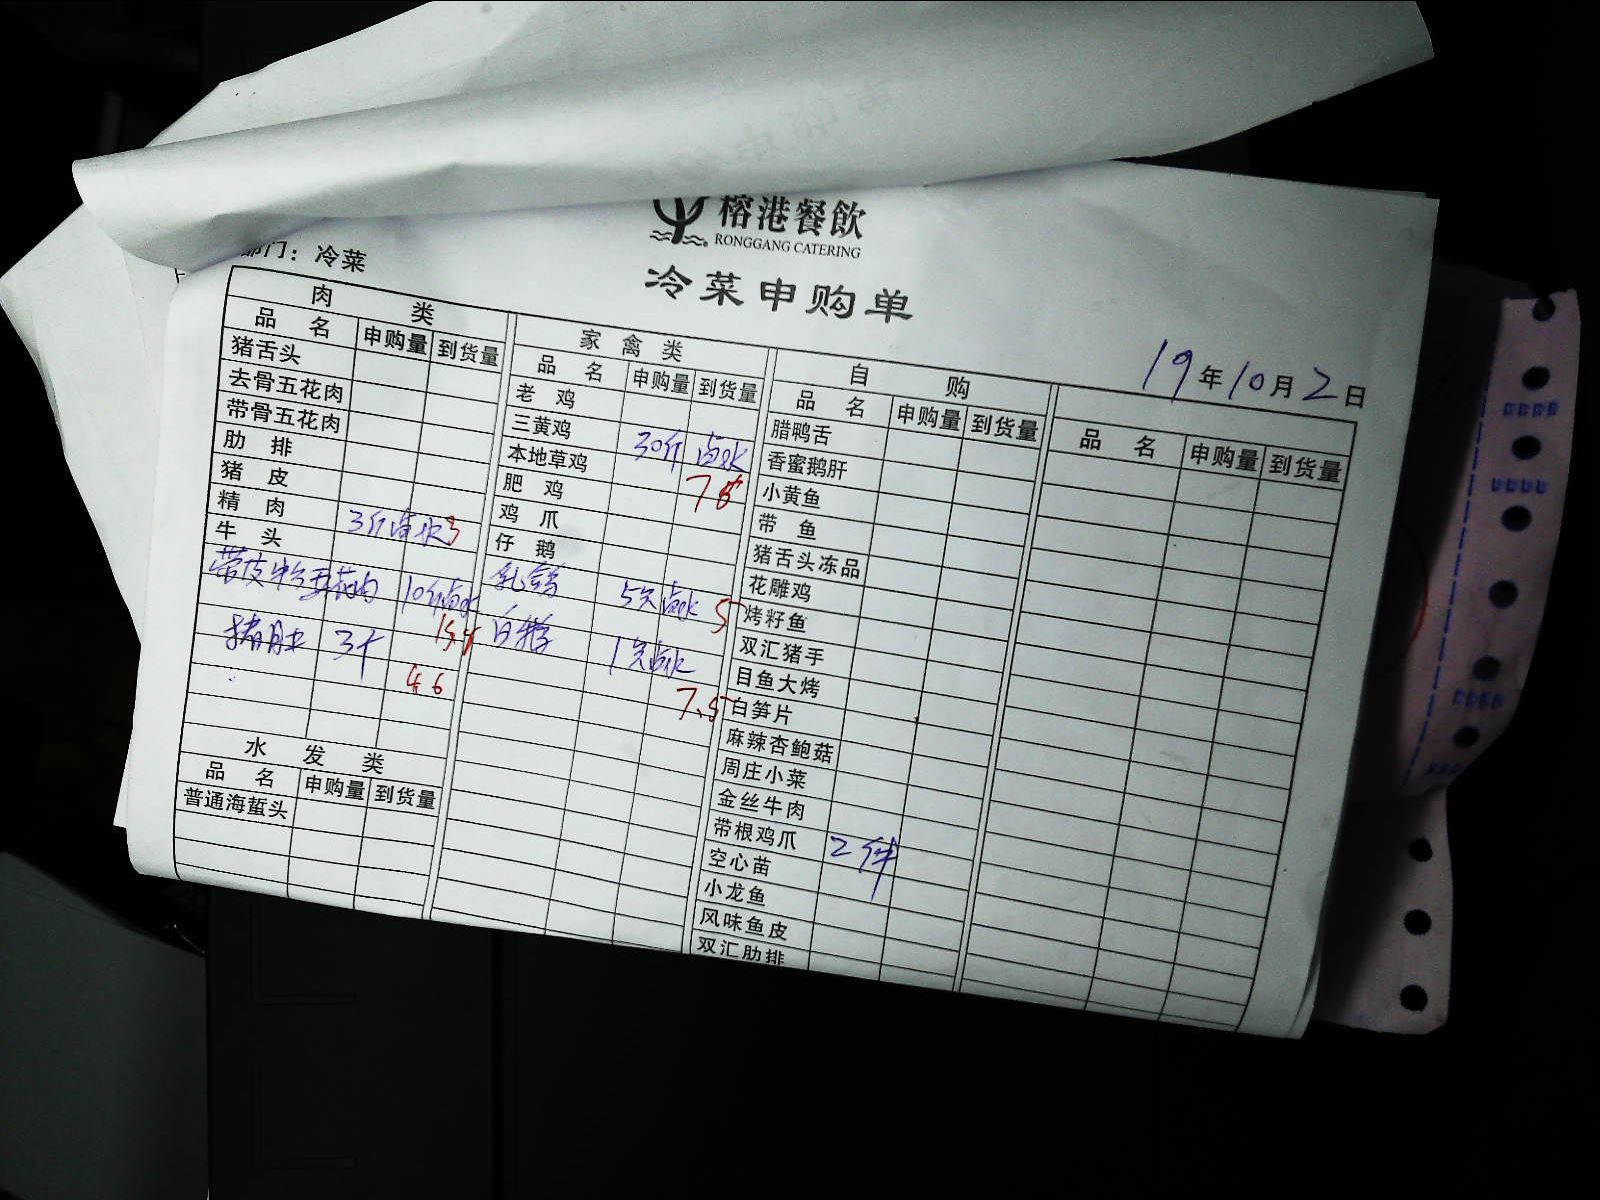 榕港餐飲
RONGGANG CATERING
部门：冷菜
冷菜申购单
19年10月2日
肉 类
品 名 申购量 到货量
猪舌头
去骨五花肉
带骨五花肉
肋 排
猪 皮
精 肉 3斤卤水 3
牛 头
带皮 五花肉 10斤卤水
15.4
猪肚 3个
4.6
水 发 类
品 名 申购量 到货量
普通海蜇头
家 禽 类
品 名 申购量 到货量
老 鸡
三黄鸡
本地草鸡 30斤 卤水
肥 鸡
鸡 爪
仔 鹅
乳鸽 5只 卤水 5
白鹅 1只 卤水
7.5
自 购
品 名 申购量 到货量
腊鸭舌
香蜜鹅肝
小黄鱼
带 鱼
猪舌头冻品
花雕鸡
烤籽鱼
双汇猪手
目鱼大烤
白笋片
麻辣杏鲍菇
周庄小菜
金丝牛肉
带根鸡爪 2件
空心苗
小龙鱼
风味鱼皮
双汇肋排
品 名 申购量 到货量